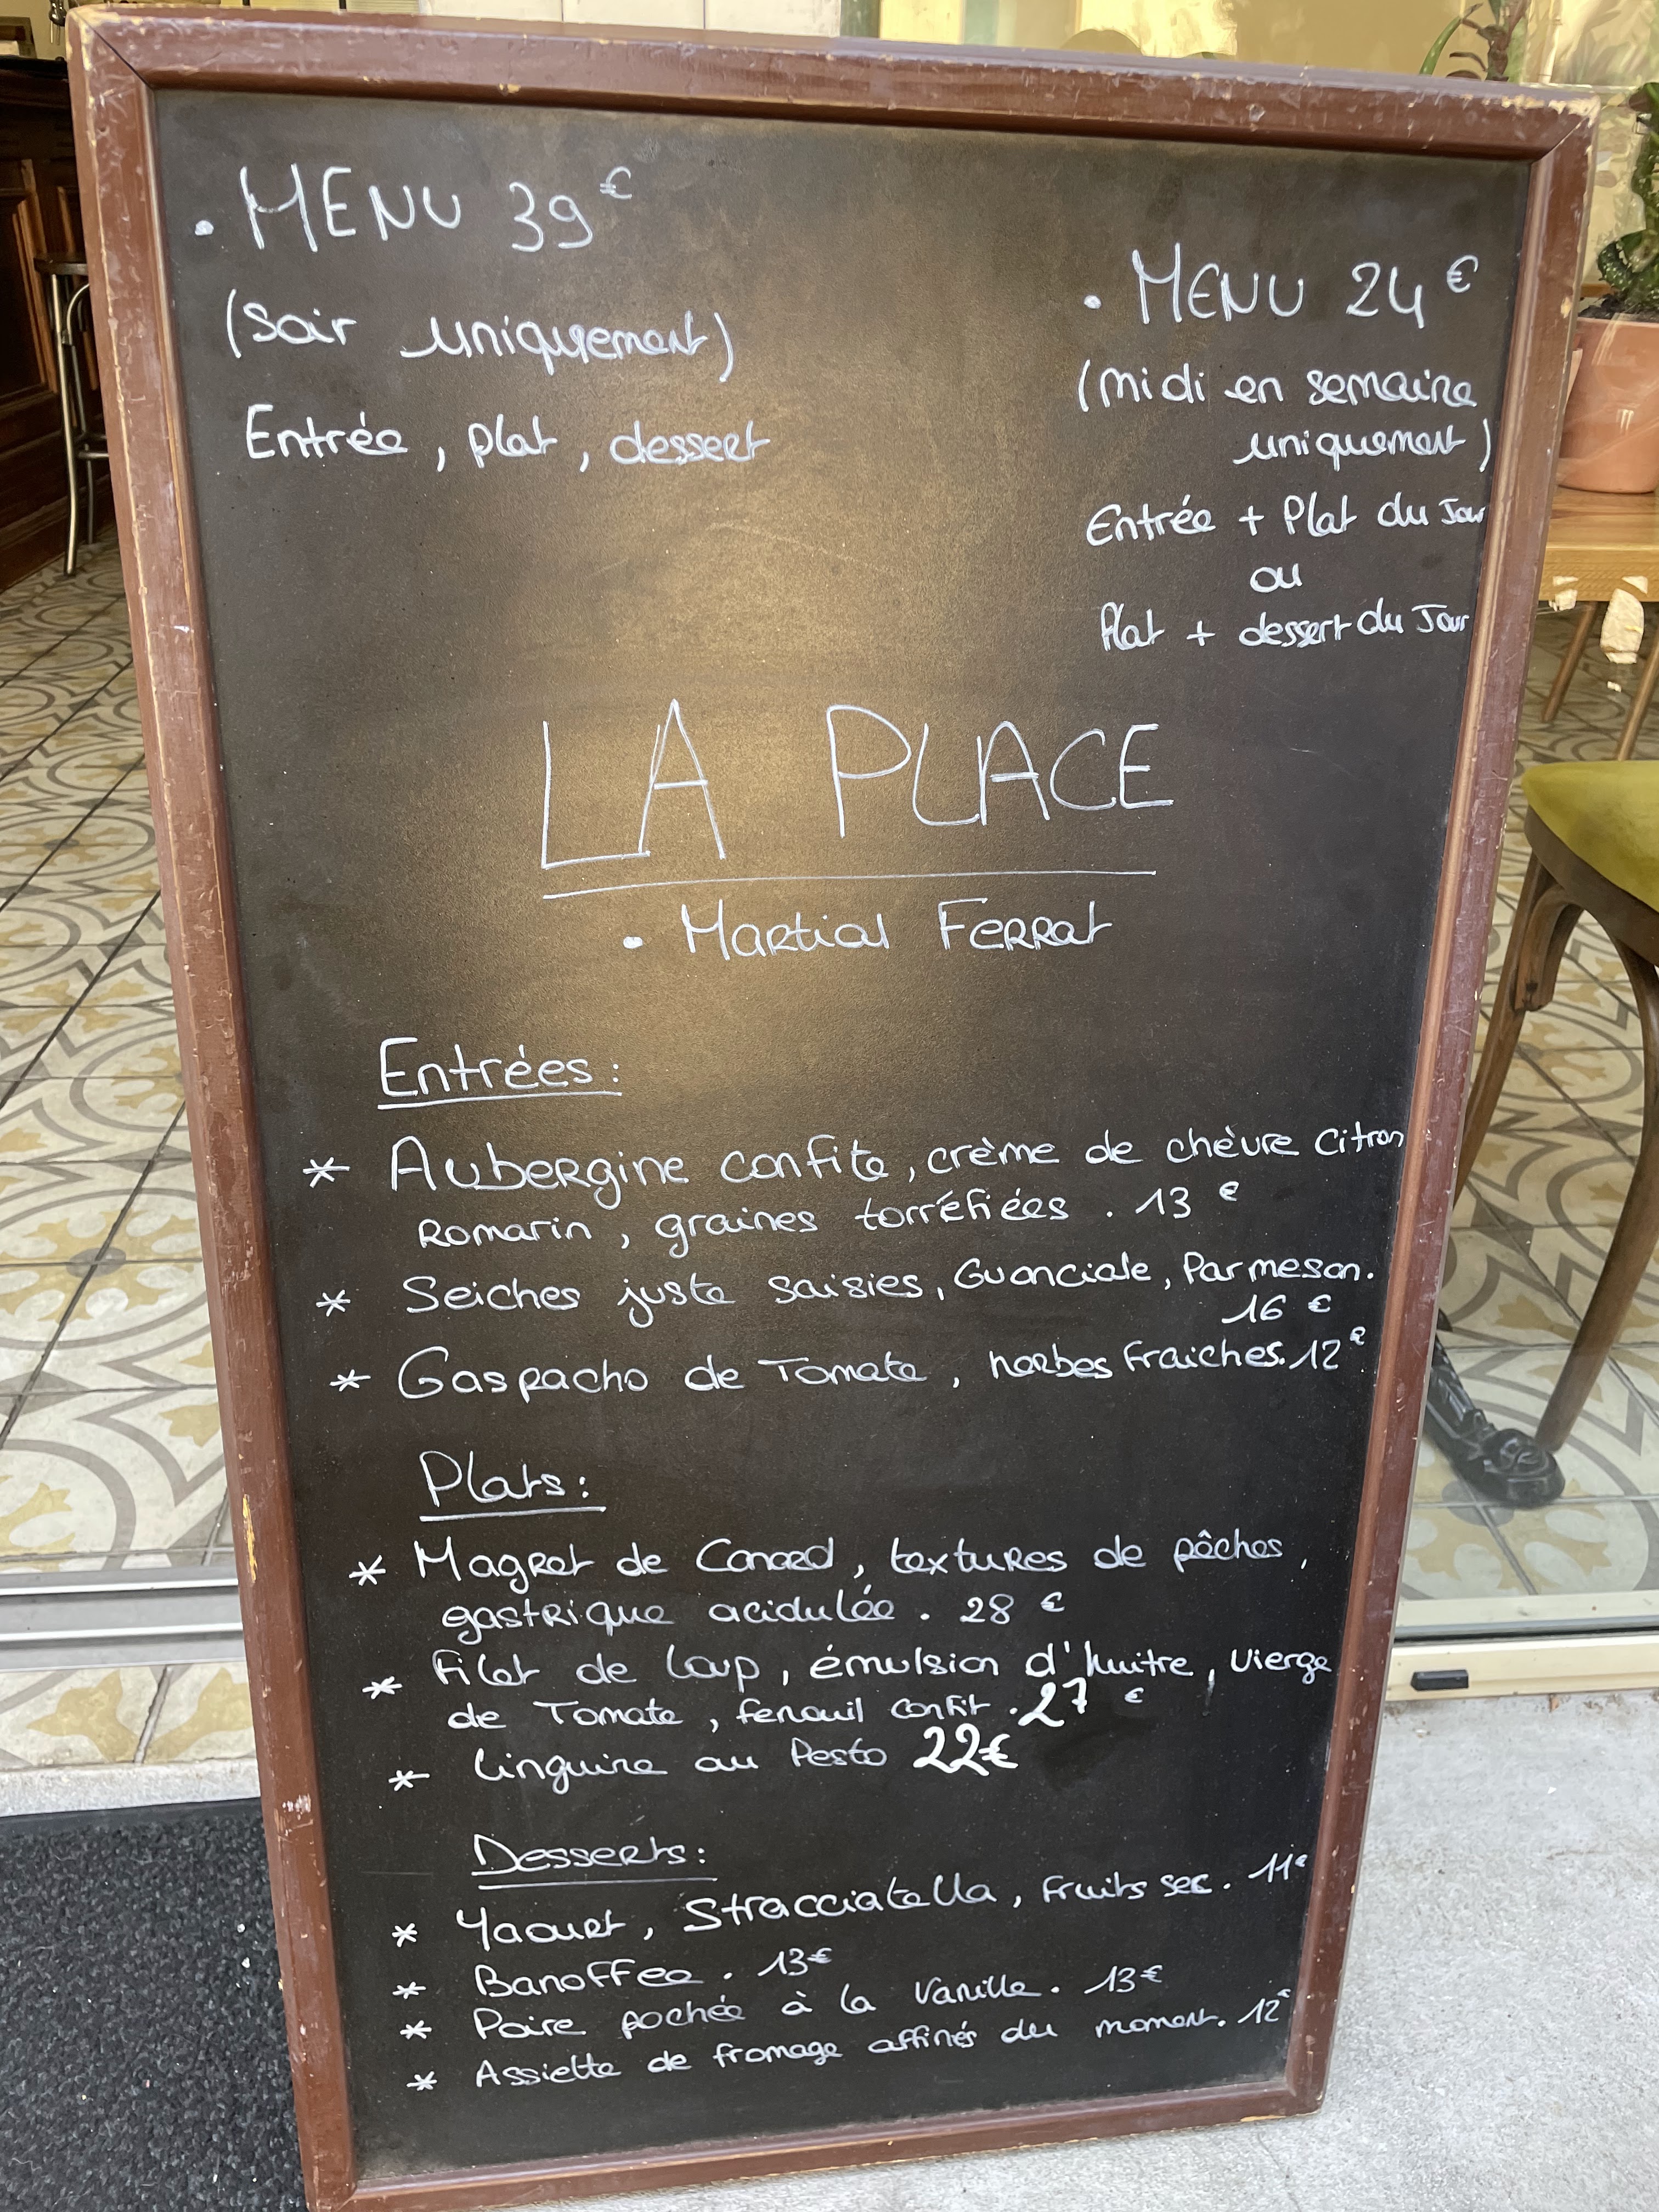 • MENU 39€
(Soir uniquement)
Entrée, plat, dessert
• MENU 24€
(midi en semaine
uniquement)
Entrée + Plat du Jour
ou
Plat + dessert du Jour
LA PLACE
• Martial Ferrat
Entrées :
* Aubergine confite, crème de chèvre citron
Romarin, graines torréfiées. 13 €
* Seiches juste saisies, Guanciale, Parmesan.
16 €
* Gaspacho de Tomate, herbes fraiches. 12€
Plats :
* Magret de Canard, textures de pêches,
gastrique acidulée. 28 €
* Filet de loup, émulsion d'huitre, vierge
de Tomate, fenouil confit. 27 €
* Linguine au Pesto 22€
Desserts :
* Yaourt, Stracciatella, fruits sec. 11€
* Banoffee. 13€
* Poire pochée à la Vanille. 13€
* Assiette de fromage affinés du moment. 12€